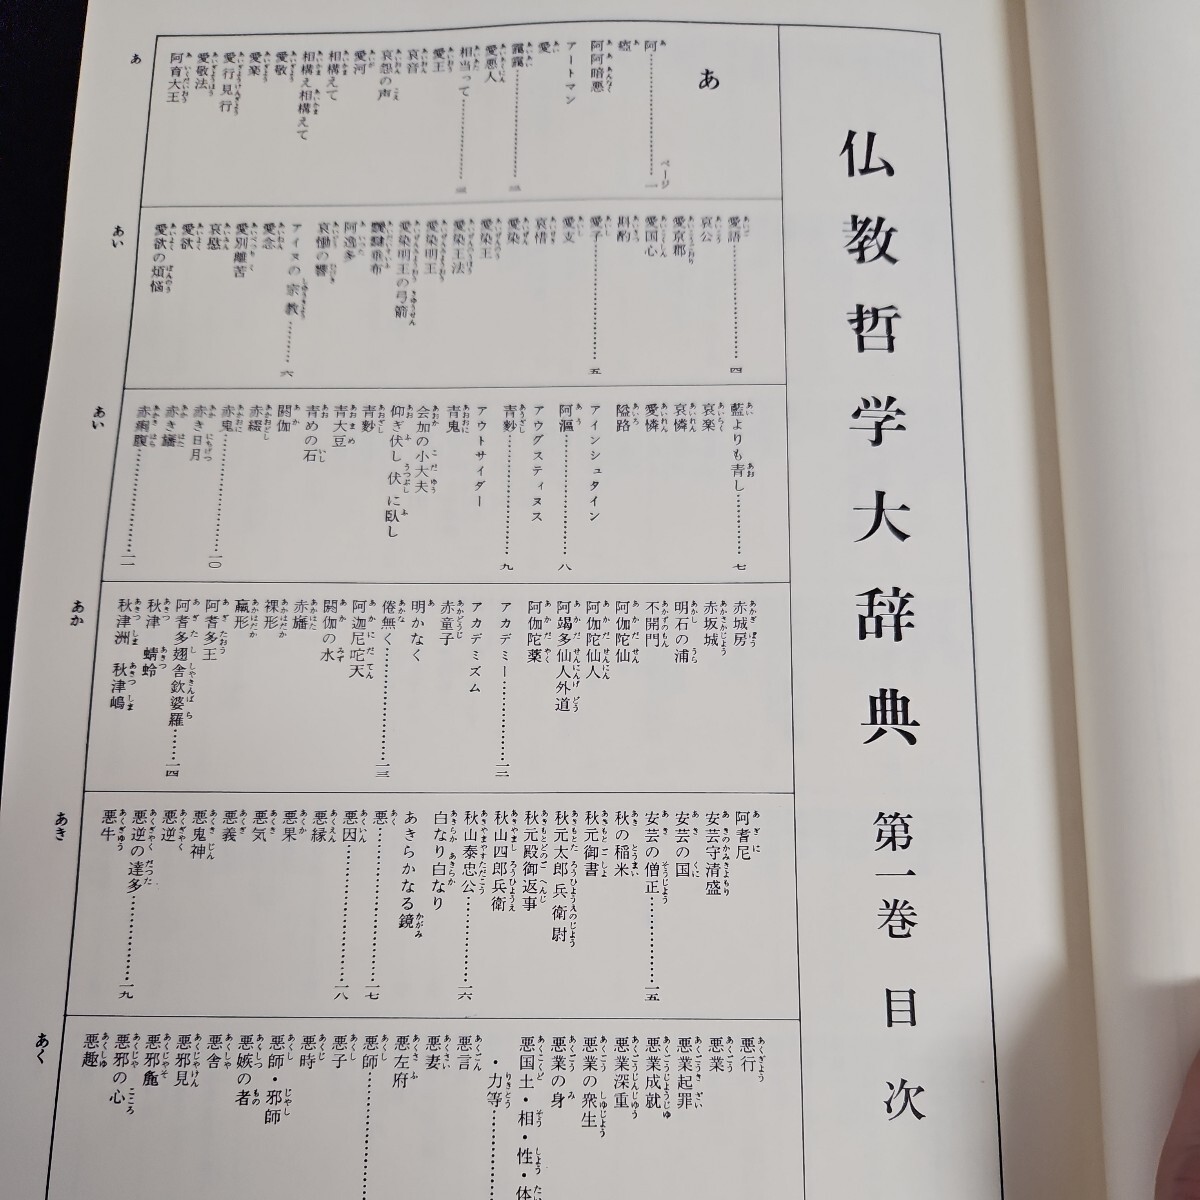 仏教哲学大辞典 第一巻 目次
あ
阿 ページ 一
瘂
阿阿暗悪
アートマン
愛
靄靄 二
愛悪人
相当って 三
愛王
哀音
哀怨の声
愛河
相構えて
相構え相構えて
愛敬
愛楽
愛行見行
愛敬法
阿育大王
あ
愛語 四
哀公
愛京郡
愛国心
斟酌
愛子 五
愛支
哀惜
愛染
愛染王
愛染王法
愛染明王
愛染明王の弓箭
靉靆垂布
阿逸多
哀慟の響
アイヌの宗教 六
愛念
愛別離苦
哀愍
愛欲
愛欲の煩悩
あい
藍よりも青し 七
哀楽
哀憐
愛憐
隘路
アインシュタイン
阿漚 八
アウグスティヌス
青麨 九
アウトサイダー
青鬼
会加の小大夫
仰ぎ伏し伏に臥し
青麨
青大豆
青めの石
閼伽
赤綴
赤鬼 一〇
赤き日月
赤き旛
赤痢腹 一一
あい
赤城房
赤坂城
明石の浦
不開門
阿伽陀仙
阿伽陀仙人
阿竭多仙人外道
阿伽陀薬
アカデミー 一二
アカデミズム
赤童子
明かなく
倦無く 一三
阿迦尼吒天
閼伽の水
赤旛
裸形
臝形
阿耆多王
阿耆多翅舎欽婆羅 一四
秋津 蜻蛉
秋津洲 秋津嶋
あか
阿耆尼
安芸守清盛
安芸の国
安芸の僧正 一五
秋の稲米
秋元御書
秋元太郎兵衛尉
秋元殿御返事
秋山四郎兵衛
秋山泰忠公 一六
白なり白なり
あきらかなる鏡
悪 一七
悪因 一八
悪縁
悪果
悪気
悪義
悪鬼神
悪逆
悪逆の達多 一九
悪牛
あき
悪行
悪業
悪業起罪
悪業成就
悪業深重
悪業の衆生
悪業の身
悪国土・相・性・体
・力等
悪言
悪妻
悪左府
悪師
悪子
悪時
悪師・邪師
悪嫉の者
悪舎
悪邪見
悪邪麁
悪邪の心
悪趣
あく